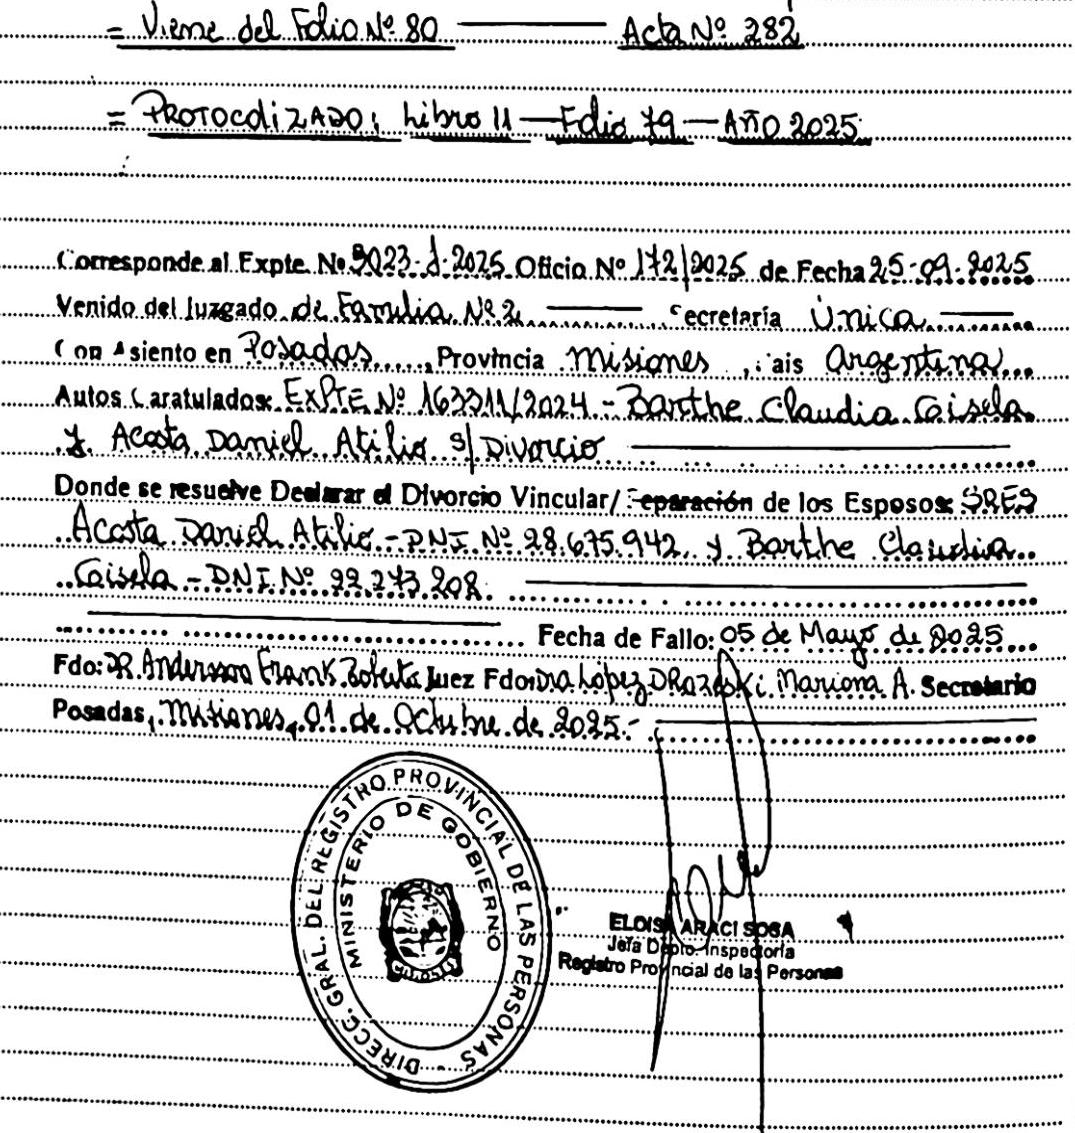 = Viene del Folio Nº 80 ——— Acta Nº 282
= PROTOCOLIZADO: Libro 11 — Folio 79 — AÑO 2025
Corresponde al Expte. Nº 9023-J-2025 Oficio Nº 172/2025 de Fecha 25-09-2025
Venido del Juzgado de Familia Nº 2 ——— Secretaría Única
Con Asiento en Posadas, Provincia Misiones, Pais Argentina
Autos Caratulados: EXPTE Nº 163311/2024 - Barthe Claudia Gisela
y Acosta Daniel Atilio s/ Divorcio
Donde se resuelve Declarar el Divorcio Vincular/ Separación de los Esposos: SRES
Acosta Daniel Atilio - DNI. Nº 28.675.942 y Barthe Claudia
Gisela - DNI. Nº 22.273.208.
Fecha de Fallo: 05 de Mayo de 2025
Fdo: DR. Andersson Frank Juez Fdo: Dra López Mariana A. Secretario
Posadas, Misiones, 01 de Octubre de 2025.-
DIRECC. GRAL. DEL REGISTRO PROVINCIAL DE LAS PERSONAS
MINISTERIO DE GOBIERNO
ELOISA ARACI SOSA
Jefa Dpto. Inspectoría
Registro Provincial de las Personas